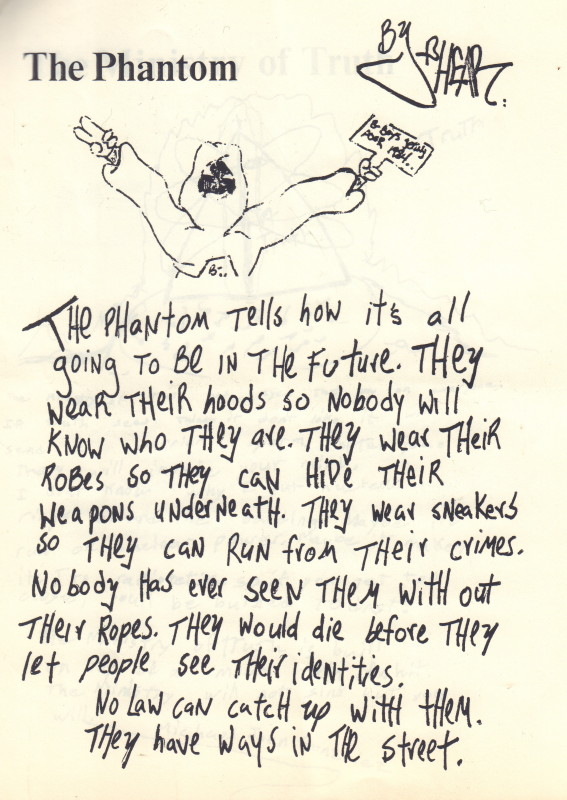 The Phantom
By SHEAR.
B..
THE PHANTOM Tells how it's all
going TO BE IN THE FUTURE. THEY
wear THEIR hoods so Nobody will
KNOW WHO THEY are. THEY wear THEIR
ROBES SO THEY CAN HIDE THEIR
weapons underneath. THEY wear sneakers
so THEY can RUN from THEIR crimes.
Nobody Has ever seen THEM WITH out
THEIR ROPES. THEY Would die before THEY
let people see THEIR identities.
NO LAW CAN catch up with THEM.
THEY have ways IN THE street.